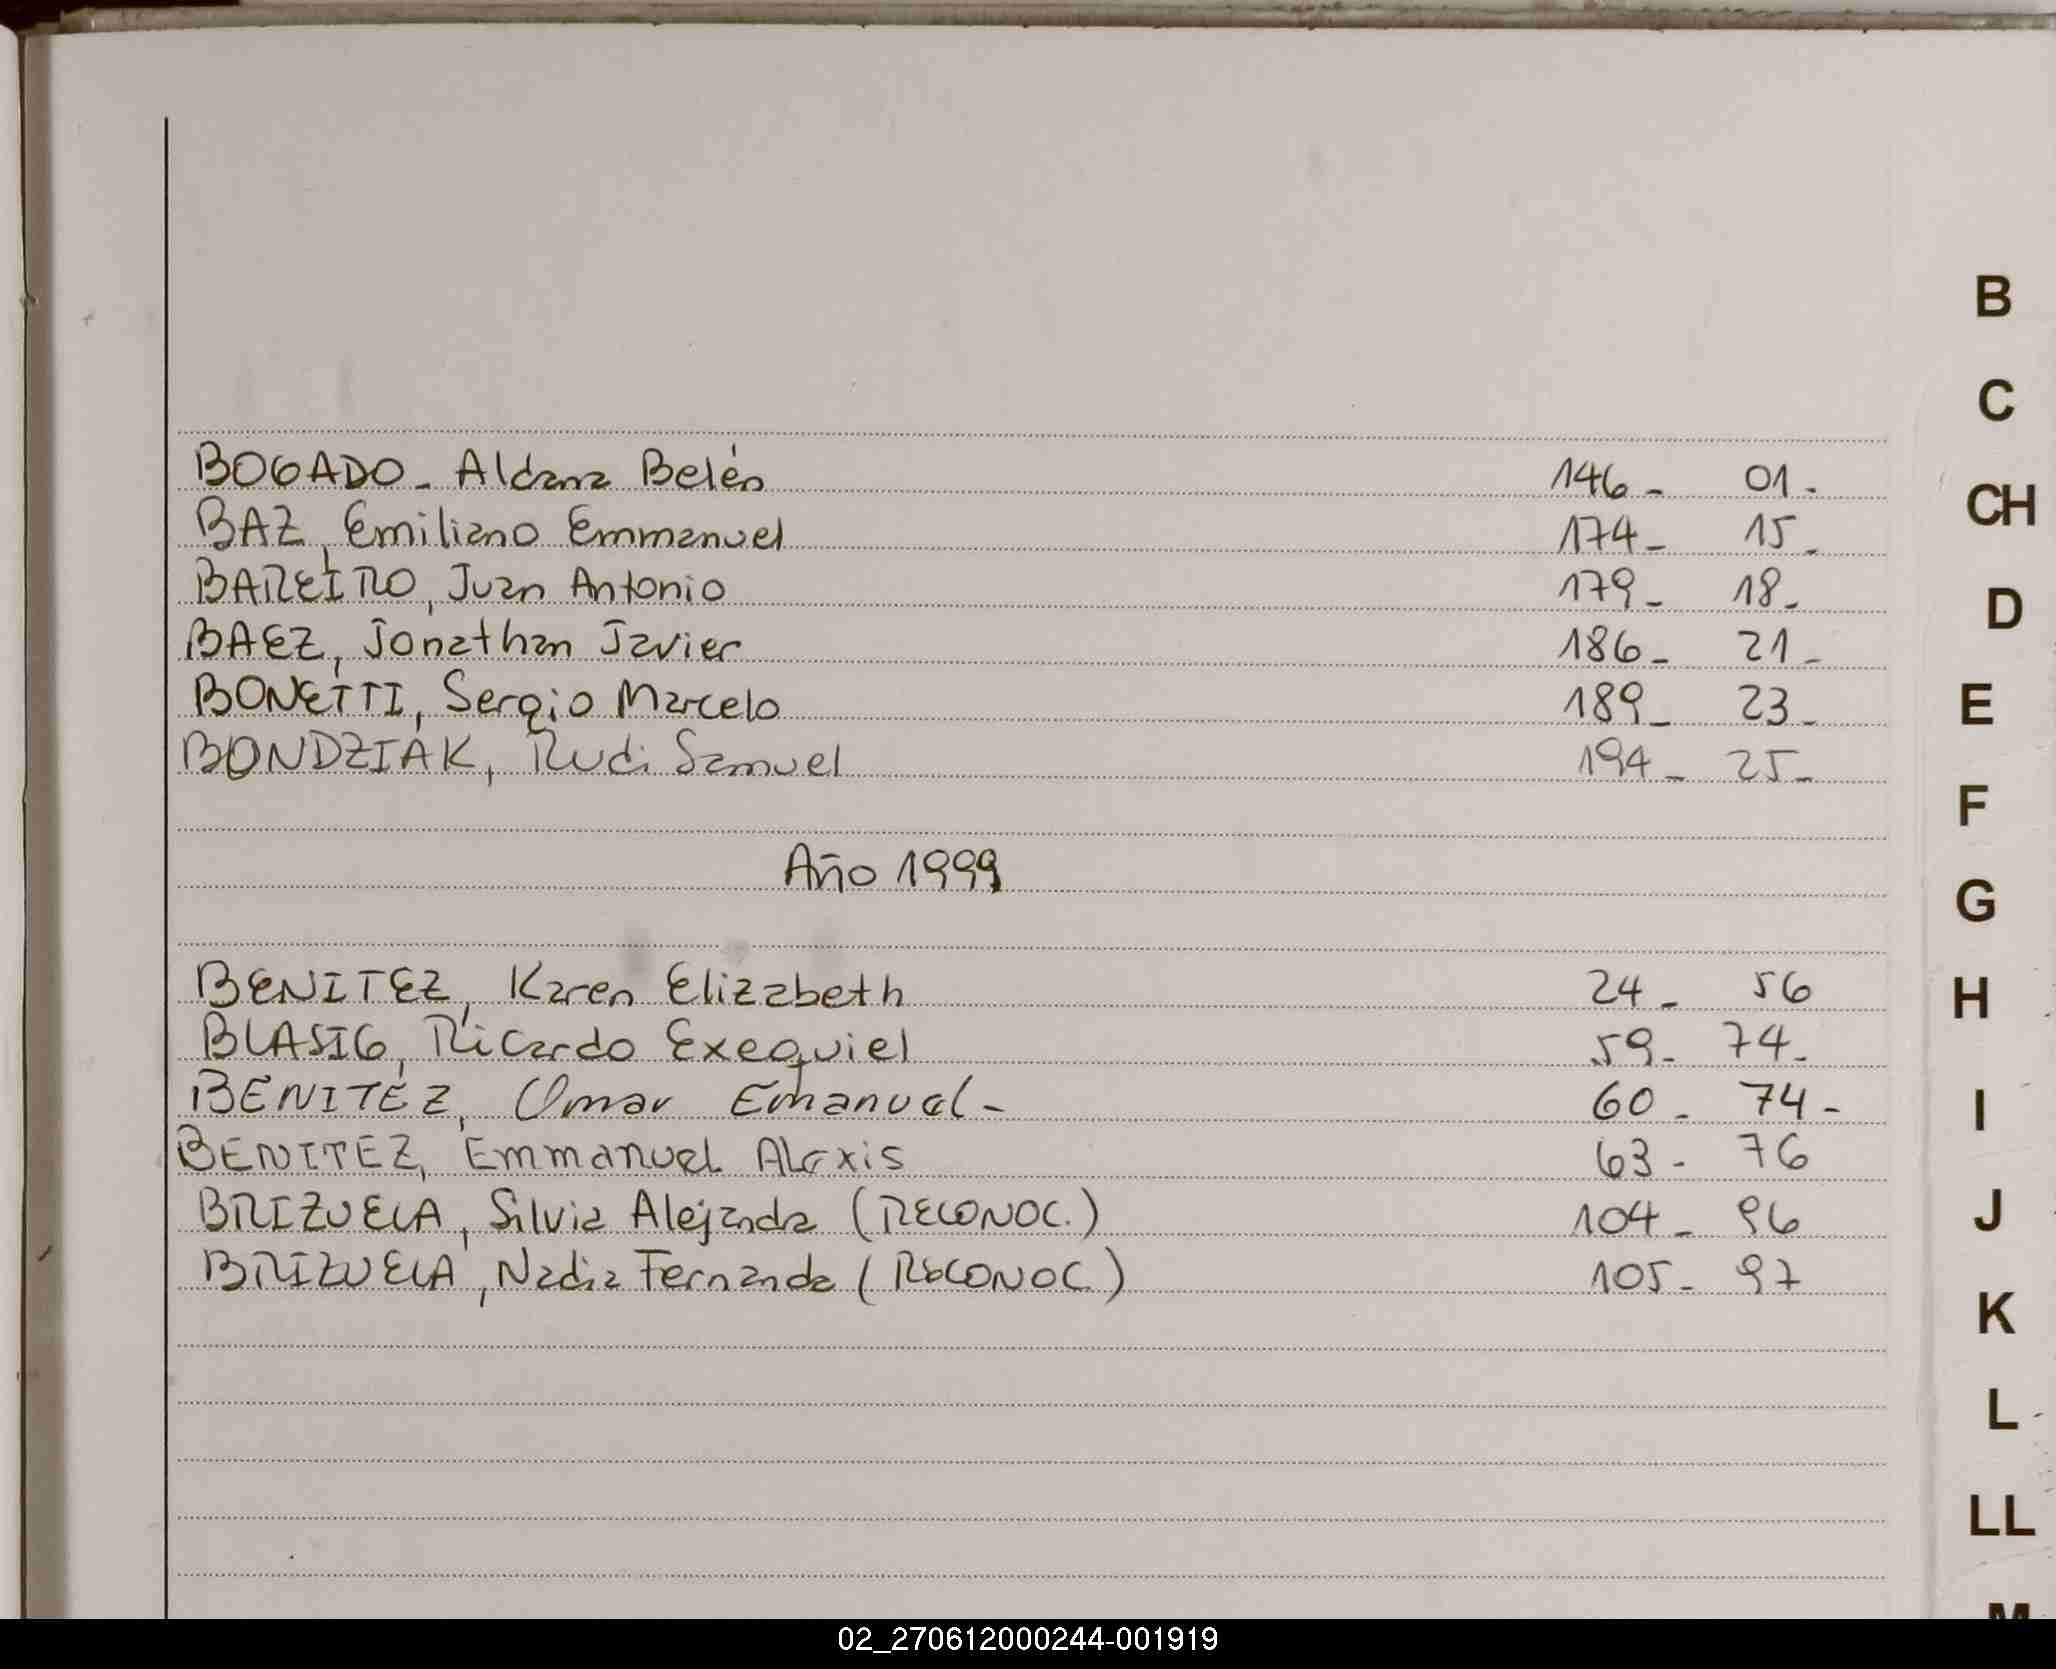 BOGADO - Aldana Belén 146 - 01 -
BAZ, Emiliano Emmanuel 174 - 15 -
BAREIRO, Juan Antonio 179 - 18 -
BAEZ, Jonathan Javier 186 - 21 -
BONETTI, Sergio Marcelo 189 - 23 -
BONDZIAK, Rudi Samuel 194 - 25 -
Año 1999
BENITEZ, Karen Elizabeth 24 - 56
BLASIG, Ricardo Exequiel 59 - 74 -
BENITEZ, Omar Emanuel - 60 - 74 -
BENITEZ, Emmanuel Alexis 63 - 76
BRIZUELA, Silvia Alejanda (RECONOC.) 104 - 96
BRIZUELA, Nadia Fernanda (RECONOC.) 105 - 97
B
C
CH
D
E
F
G
H
I
J
K
L
LL
M
02_270612000244-001919